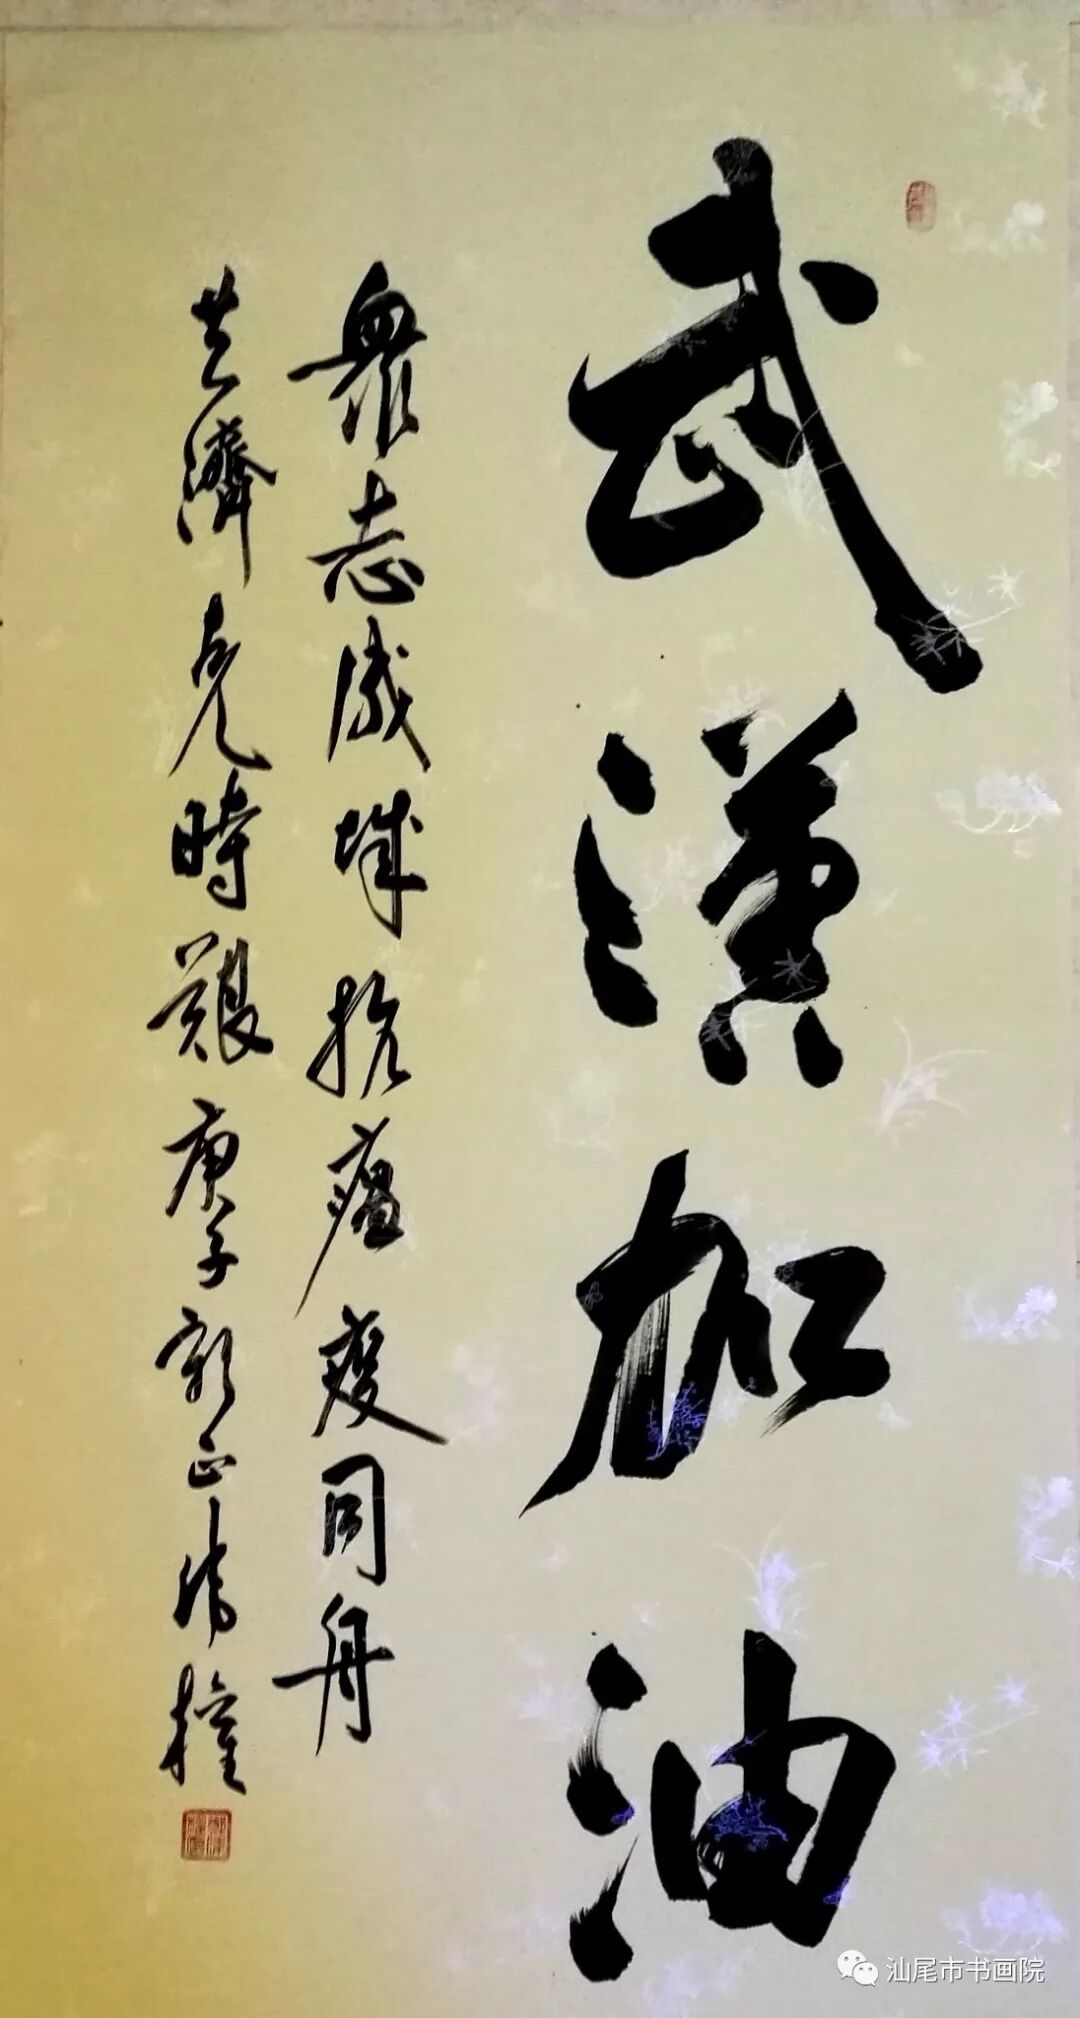 武漢加油
衆志成城抗瘟疫同舟
共濟克時艱庚子彭正清權
汕尾市书画院